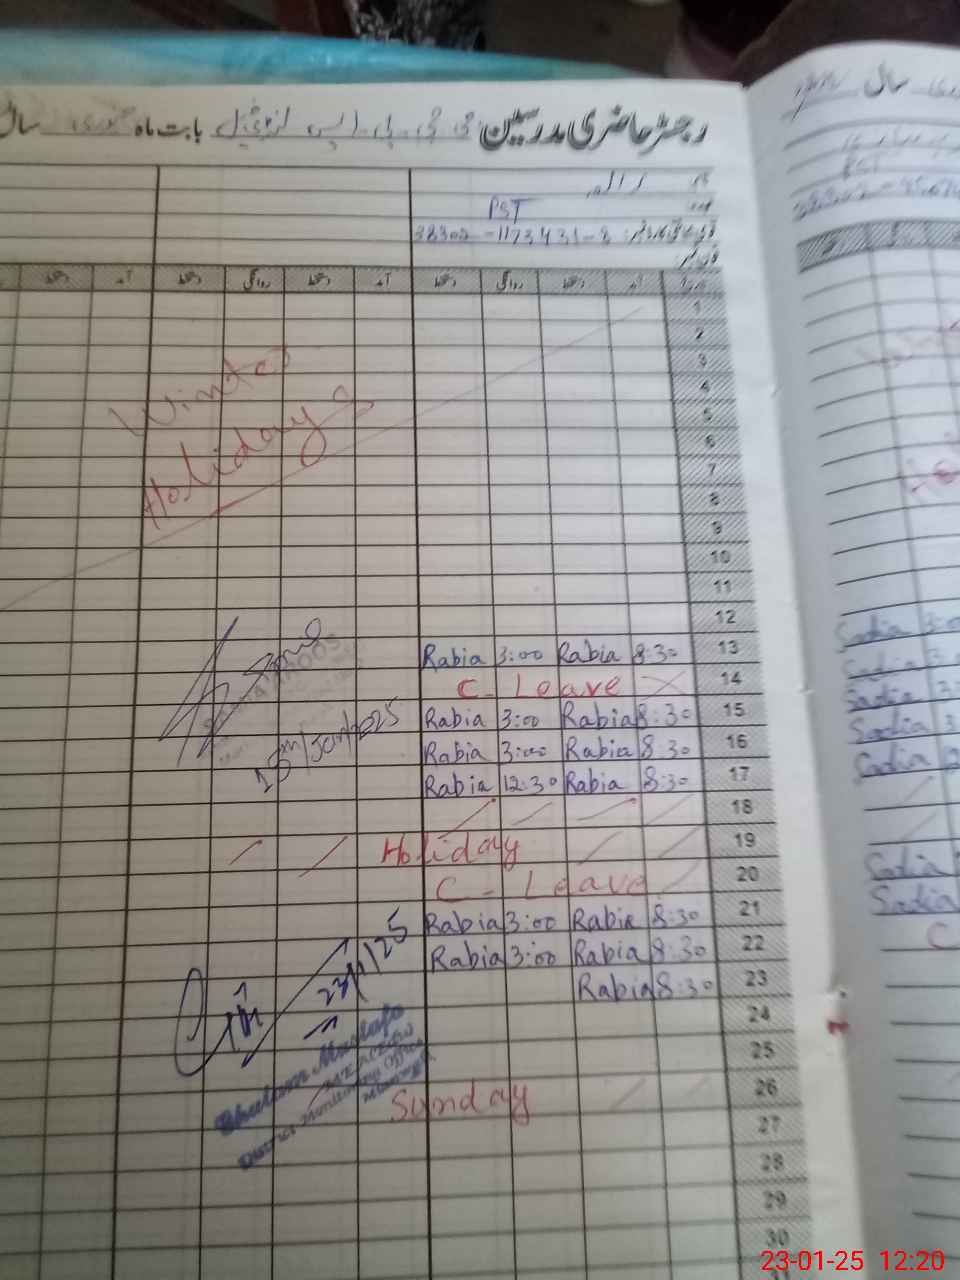 رجسٹر حاضری مدرسین جی جی پی ایس بابت ماہ جنوری سال
نام رابعہ
عہدہ PST
قومی شناختی کارڈ نمبر: 38302-1173431-8
فون نمبر:
تاریخ آمد دستخط روانگی دستخط آمد دستخط روانگی دستخط آمد دستخط
1
2
3
4
5
6
7
8
9
10
11
Winter
Holidays
12
Rabia 3:00 Rabia 8:30 13
C-Leave 14
Rabia 3:00 Rabia 8:30 15
Rabia 3:00 Rabia 8:30 16
Rabia 12:30 Rabia 8:30 17
18th/Jan/2025
18
Holiday 19
C-Leave 20
Rabia 3:00 Rabia 8:30 21
Rabia 3:00 Rabia 8:30 22
Rabia 8:30 23
23/1/25
Ghulam Mustafa
District Monitoring Office
24
25
Sunday 26
27
28
29
30
سال
PST
Sadia 3:00
Sadia
Sadia
Sadia
Sadia
Sadia
Sadia
C
23-01-25 12:20